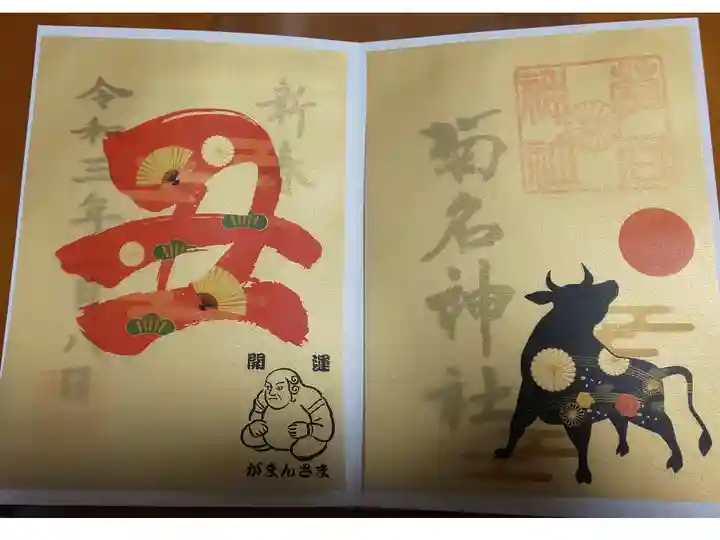 菊名神社
菊名
神社
新春
丑
令和三年一月八日
開運
がまんさま